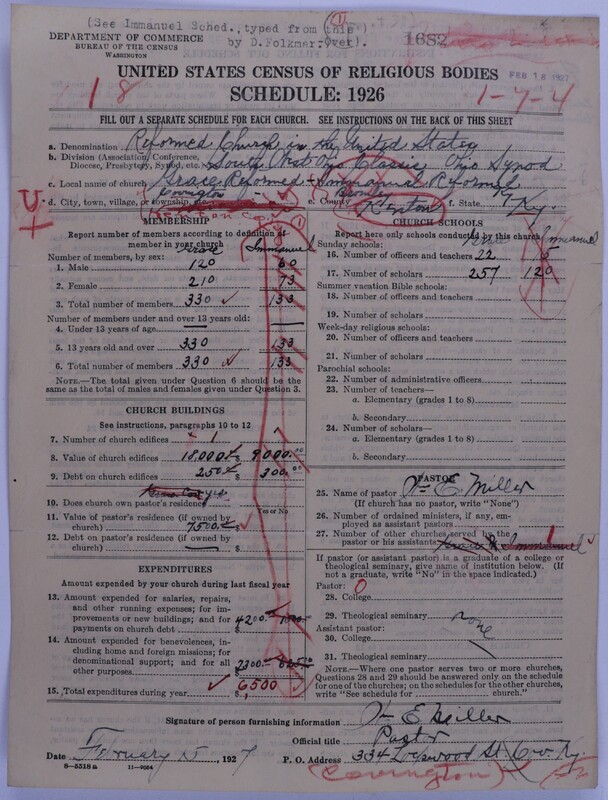 (See Immanuel Sched., typed from this
by D. Folkmar. Over).
1
DEPARTMENT OF COMMERCE
BUREAU OF THE CENSUS
WASHINGTON
1682
UNITED STATES CENSUS OF RELIGIOUS BODIES
FEB 18 1927
SCHEDULE: 1926
18
1-7-4
FILL OUT A SEPARATE SCHEDULE FOR EACH CHURCH. SEE INSTRUCTIONS ON THE BACK OF THIS SHEET
a. Denomination Reformed Church in the United States
b. Division (Association, Conference,
Diocese, Presbytery, Synod, etc.) South West Ohio Classis Ohio Synod
c. Local name of church Grace Reformed - Immanuel Reformed
d. City, town, village, or township, etc. Covington e. County Kenton f. State Ky.
MEMBERSHIP
Report number of members according to definition of
member in your church
Number of members, by sex: Grace Immanuel
1. Male 120 60
2. Female 210 73
3. Total number of members 330 133
Number of members under and over 13 years old:
4. Under 13 years of age
5. 13 years old and over 330 133
6. Total number of members 330 133
NOTE.—The total given under Question 6 should be the
same as the total of males and females given under Question 3.
CHURCH BUILDINGS
See instructions, paragraphs 10 to 12
7. Number of church edifices 1 1
8. Value of church edifices $ 18,000 $ 9,000.00
9. Debt on church edifices 250 300.00
10. Does church own pastor's residence? yes
Yes or No
11. Value of pastor's residence (if owned by
church) 7500
12. Debt on pastor's residence (if owned by
church) $
EXPENDITURES
Amount expended by your church during last fiscal year
13. Amount expended for salaries, repairs,
and other running expenses; for im-
provements or new buildings; and for
payments on church debt $ 4200
14. Amount expended for benevolences,
including home and foreign missions; for
denominational support; and for all
other purposes $ 2300
15. Total expenditures during year $ 6500
CHURCH SCHOOLS
Report here only schools conducted by this church
Sunday schools: Immanuel
16. Number of officers and teachers 22 15
17. Number of scholars 257 120
Summer vacation Bible schools:
18. Number of officers and teachers
19. Number of scholars
Week-day religious schools:
20. Number of officers and teachers
21. Number of scholars
Parochial schools:
22. Number of administrative officers
23. Number of teachers—
a. Elementary (grades 1 to 8)
b. Secondary
24. Number of scholars—
a. Elementary (grades 1 to 8)
b. Secondary
PASTOR
25. Name of pastor Wm E. Miller
(If church has no pastor, write "None")
26. Number of ordained ministers, if any, em-
ployed as assistant pastors
27. Number of other churches served by the
pastor or his assistants 1 Immanuel
If pastor (or assistant pastor) is a graduate of a college or
theological seminary, give name of institution below. (If
not a graduate, write "No" in the space indicated.)
Pastor: O
28. College
29. Theological seminary none
Assistant pastor:
30. College
31. Theological seminary
NOTE.—Where one pastor serves two or more churches,
Questions 28 and 29 should be answered only on the schedule
for one of the churches; on the schedules for the other churches,
write "See schedule for church."
Signature of person furnishing information Wm E Miller
Official title Pastor
Date February 15, 1927 P. O. Address 334 Lockwood St Cov. Ky.
8—5518 a 11—9064
(Covington)